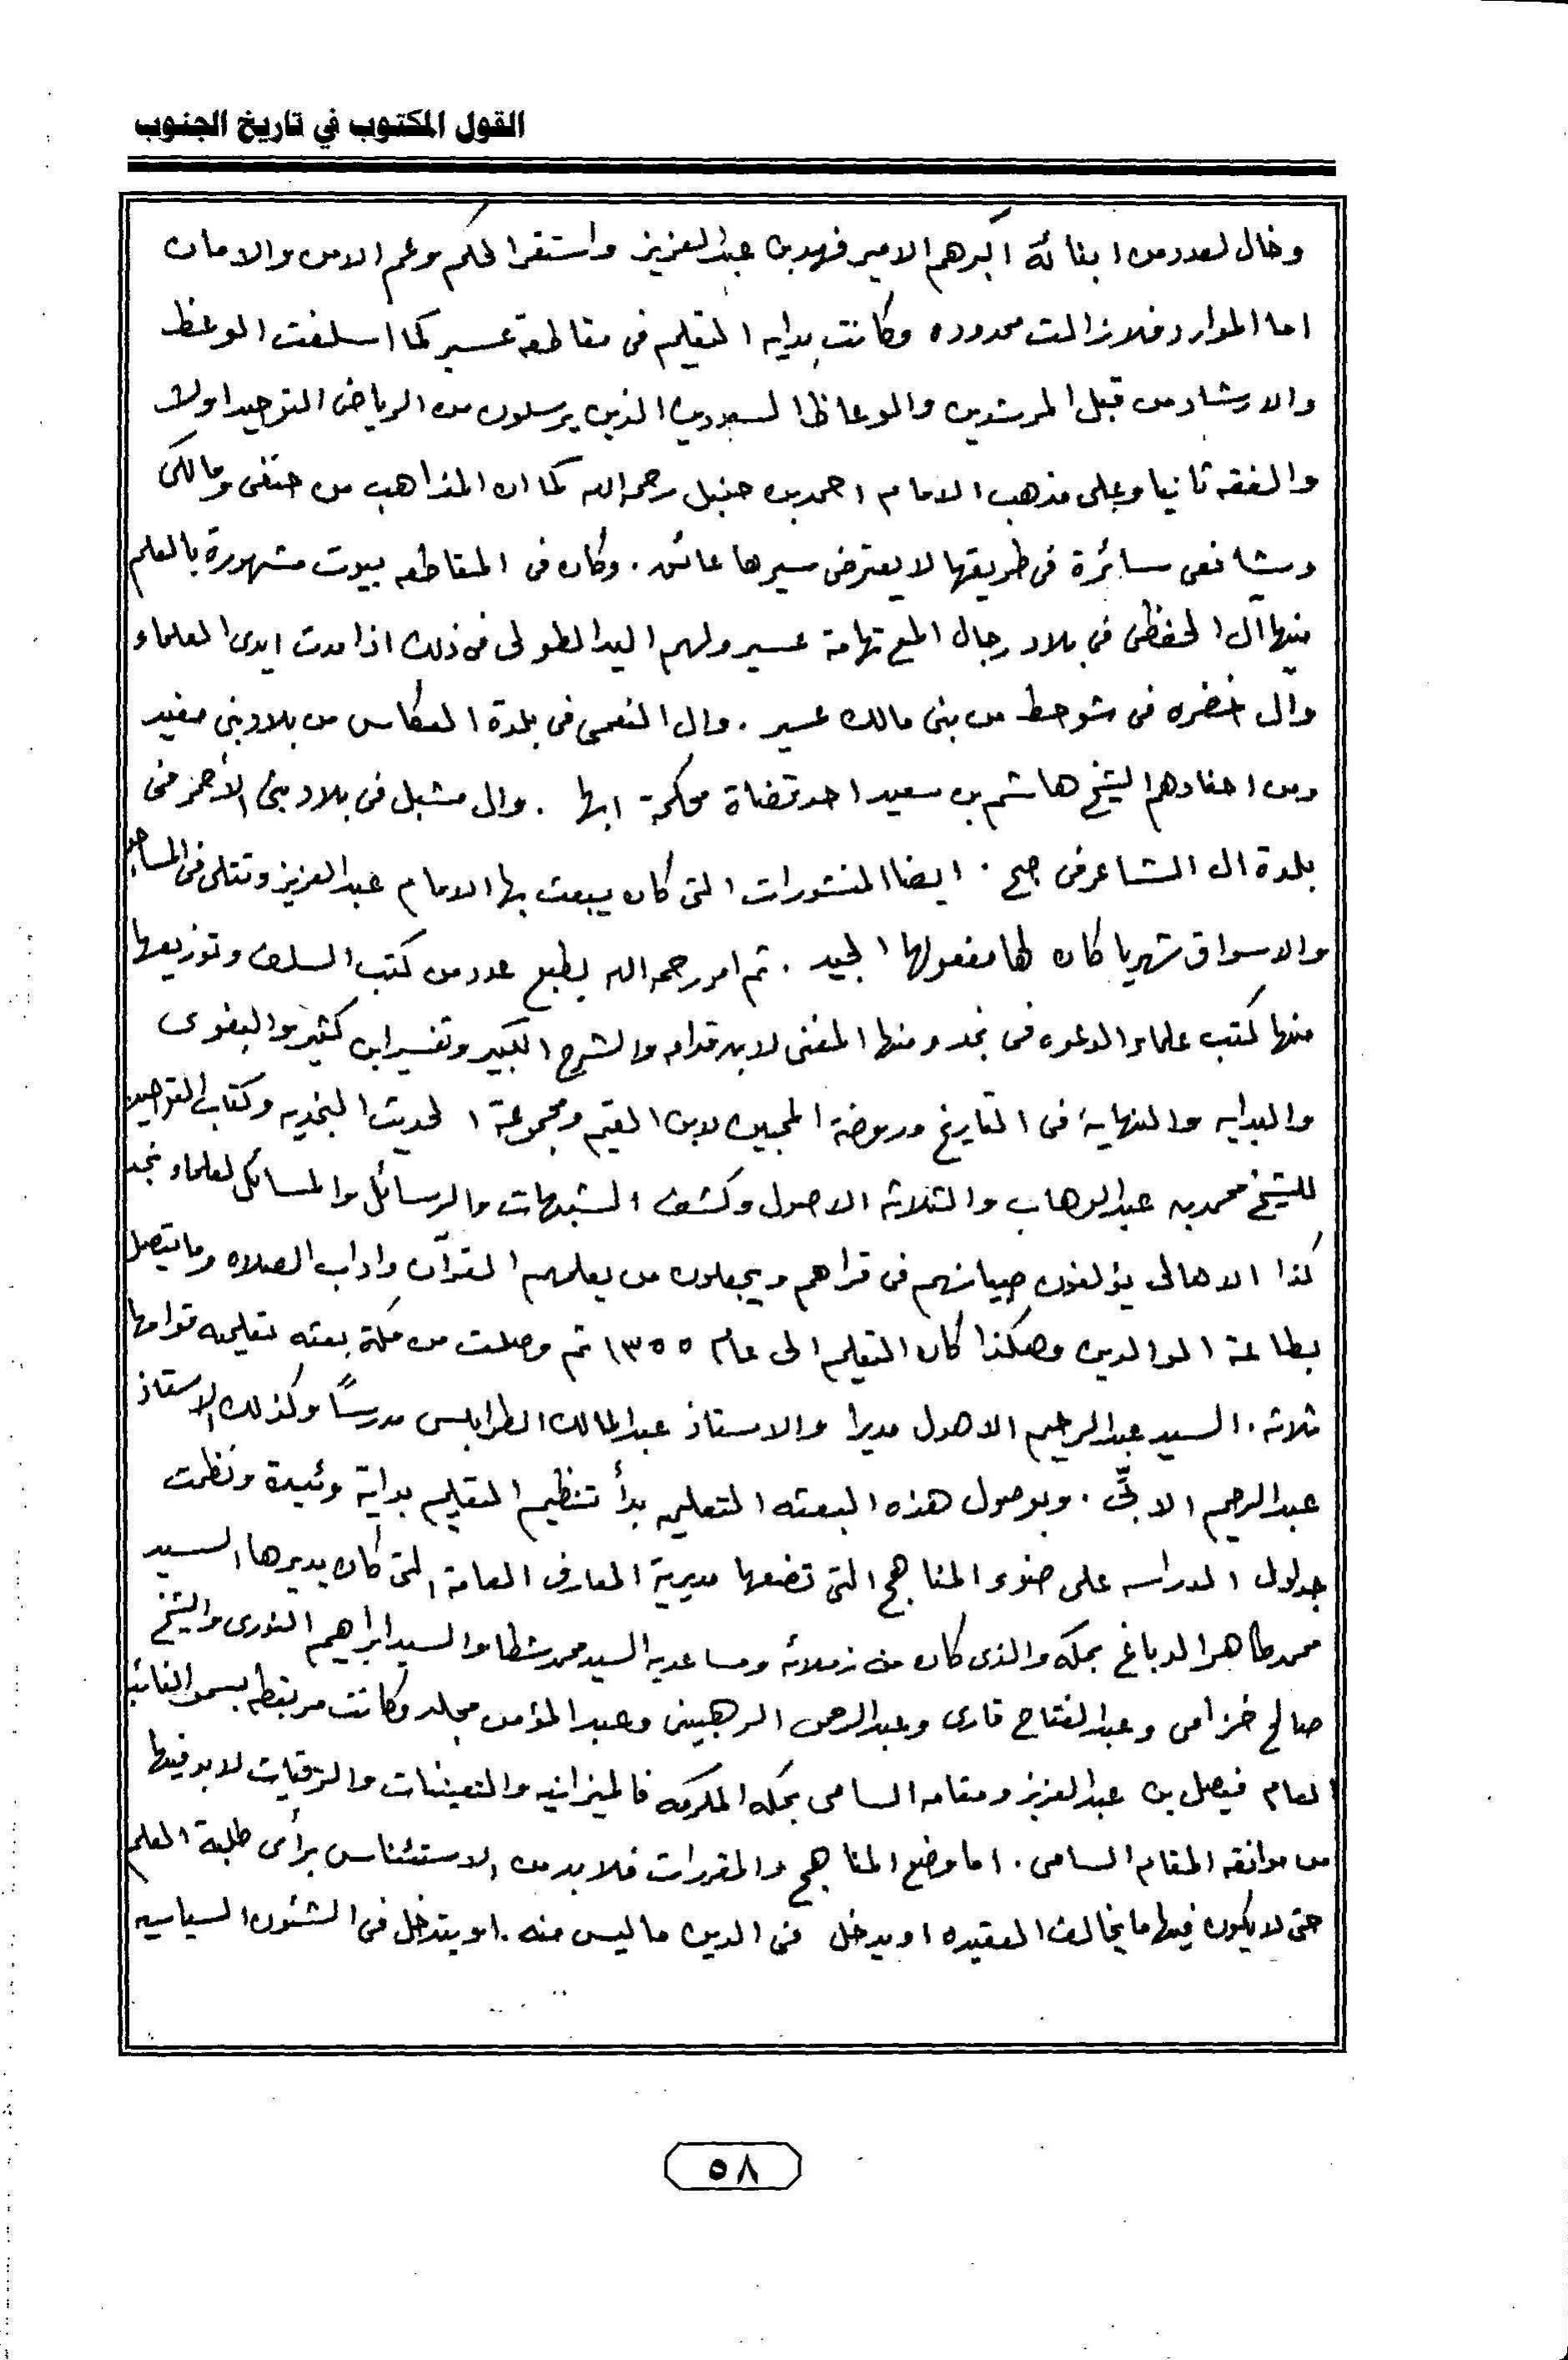 القول المكتوب في تاريخ الجنوب
وخال لعدد من ابنائه أكبرهم الامير فهد بن عبدالعزيز واستقر الحكم وعم الامن والامان
اما الموارد فلا زالت محدوده وكانت بدايه التعليم فى مقاطعة عسير كما اسلفت الوعظ
والارشاد من قبل المرشدين والوعاظ السعوديين الذين يرسلون من الرياض التوحيد اولا
والفقه ثانيا وعلى مذهب الامام احمد بن حنبل رحمه الله كما ان المذاهب من حنفى ومالكى
وشافعى سائرة فى طريقها لا يعترض سيرها عائق . وكان فى المقاطعه بيوت مشهورة بالعلم
منها آل الحفظى فى بلاد رجال المع تهامة عسير ولهم اليد الطولى فى ذلك اذا مدت ايدى العلماء
وال خضره فى شوحط من بنى مالك عسير . وال النعمى فى بلدة العكاس من بلاد بنى مغيد
ومن احفادهم الشيخ هاشم بن سعيد احد قضاة محكمة ابها . وال مشبل فى بلاد بنى الأحمر فى
بلدة ال الشاعر فى صبح . ايضا المنشورات التى كان يبعث بها الامام عبدالعزيز وتتلى فى المساجد
والاسواق شهريا كان لها مفعولها الجيد . ثم امر رحمه الله بطبع عدد من كتب السلف وتوزيعها
منها كتب علماء الدعوه فى نجد ومنها المغنى لابن قدامه والشرح الكبير وتفسير ابن كثير والبغوى
والبدايه والنهاية فى التاريخ وروضة المحبين لابن القيم ومجموعة الحديث النجديه وكتاب التوحيد
للشيخ محمد بن عبدالوهاب والثلاثه الاصول وكشف الشبهات والرسائل والمسائل لعلماء نجد
كذا الاهالى يؤلفون صبيانهم فى قراهم ويجعلون من يعلمهم القرآن واداب الصلاه وما يتصل
بطاعة الوالدين وهكذا كان التعليم الى عام ١٣٥٥ ثم وصلت من مكة بعثه تعليميه قوامها
ثلاثه . السيد عبدالرحيم الاهدل مديرا والاستاذ عبدالمالك الطرابلسى مدرسًا وكذلك الاستاذ
عبدالرحيم الابّى . وبوصول هذه البعثه التعليميه بدأ تنظيم التعليم بداية وئيدة ونظمت
جداول الدراسه على ضوء المناهج التى تضعها مديرية المعارف العامة التى كان يديرها السيد
محمد طاهر الدباغ بمكه والذى كان من زملائه ومساعديه السيد محمد شطا والسيد ابراهيم النورى والشيخ
صالح خزامى وعبدالفتاح قارى وعبدالرحمن الرهبينى وعبدالمؤمن مجلد وكانت مرتبطه بسمو النائب
العام فيصل بن عبدالعزيز ومقامه السامى بمكه المكرمه فالميزانيه والتعيينات والترقيات لابد فيها
من موافقه المقام السامى . اما وضع المناهج والمقررات فلابد من الاستئناس برأى طلبة العلم
حتى لا يكون فيها ما يخالف العقيده او يدخل فى الدين ما ليس منه . او يتدخل فى الشئون السياسيه
٥٨